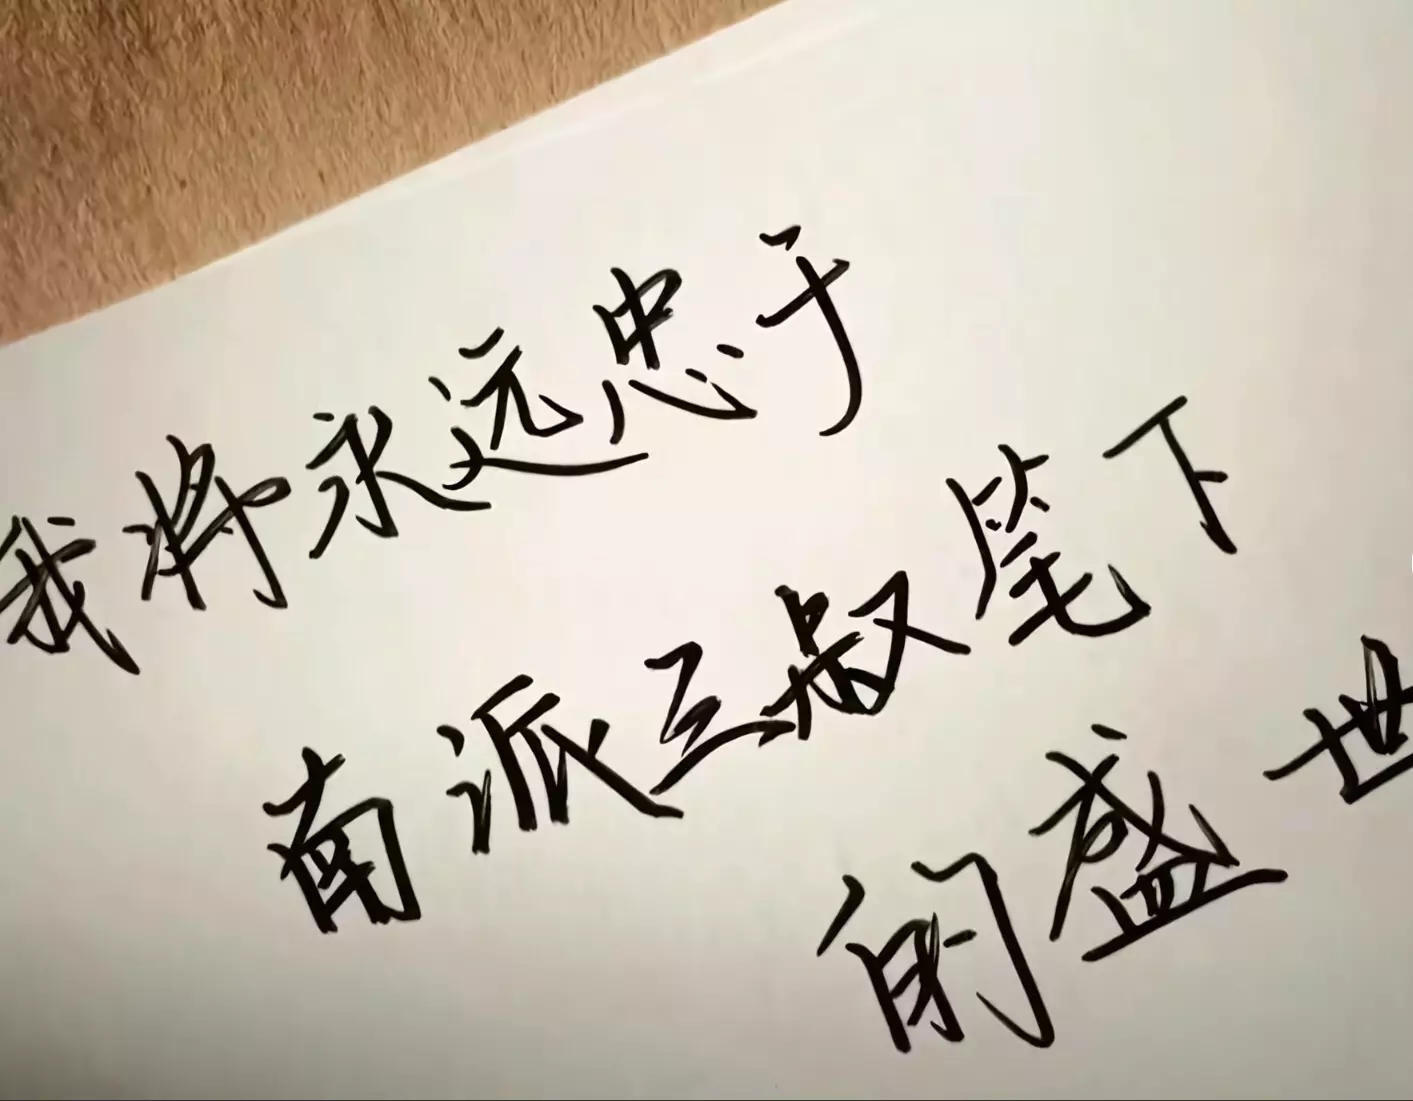 我将永远忠于
南派三叔笔下
的盛世